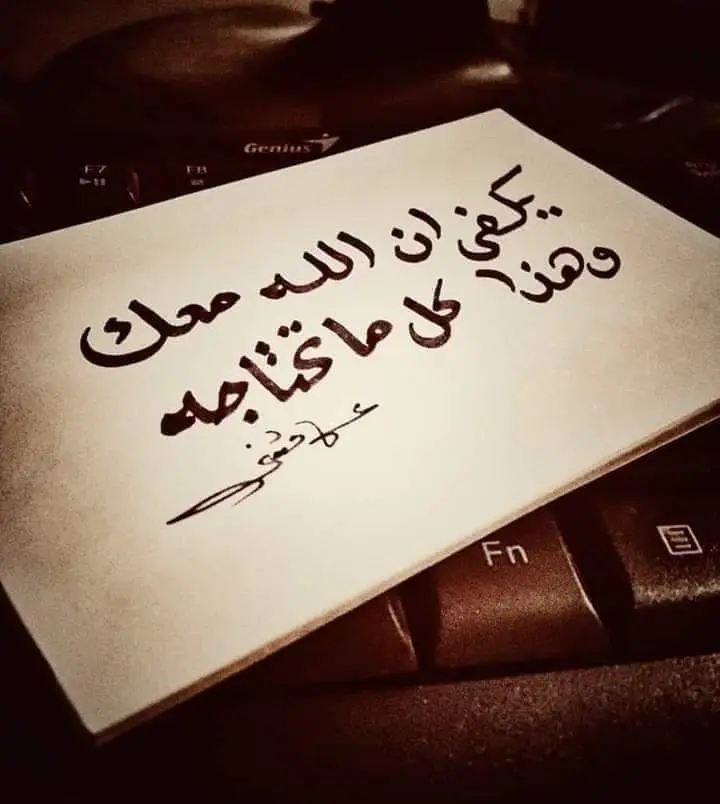 Genius
F7
F8
يكفي ان الله معك
وهذا كل ما تحتاجه
Fn